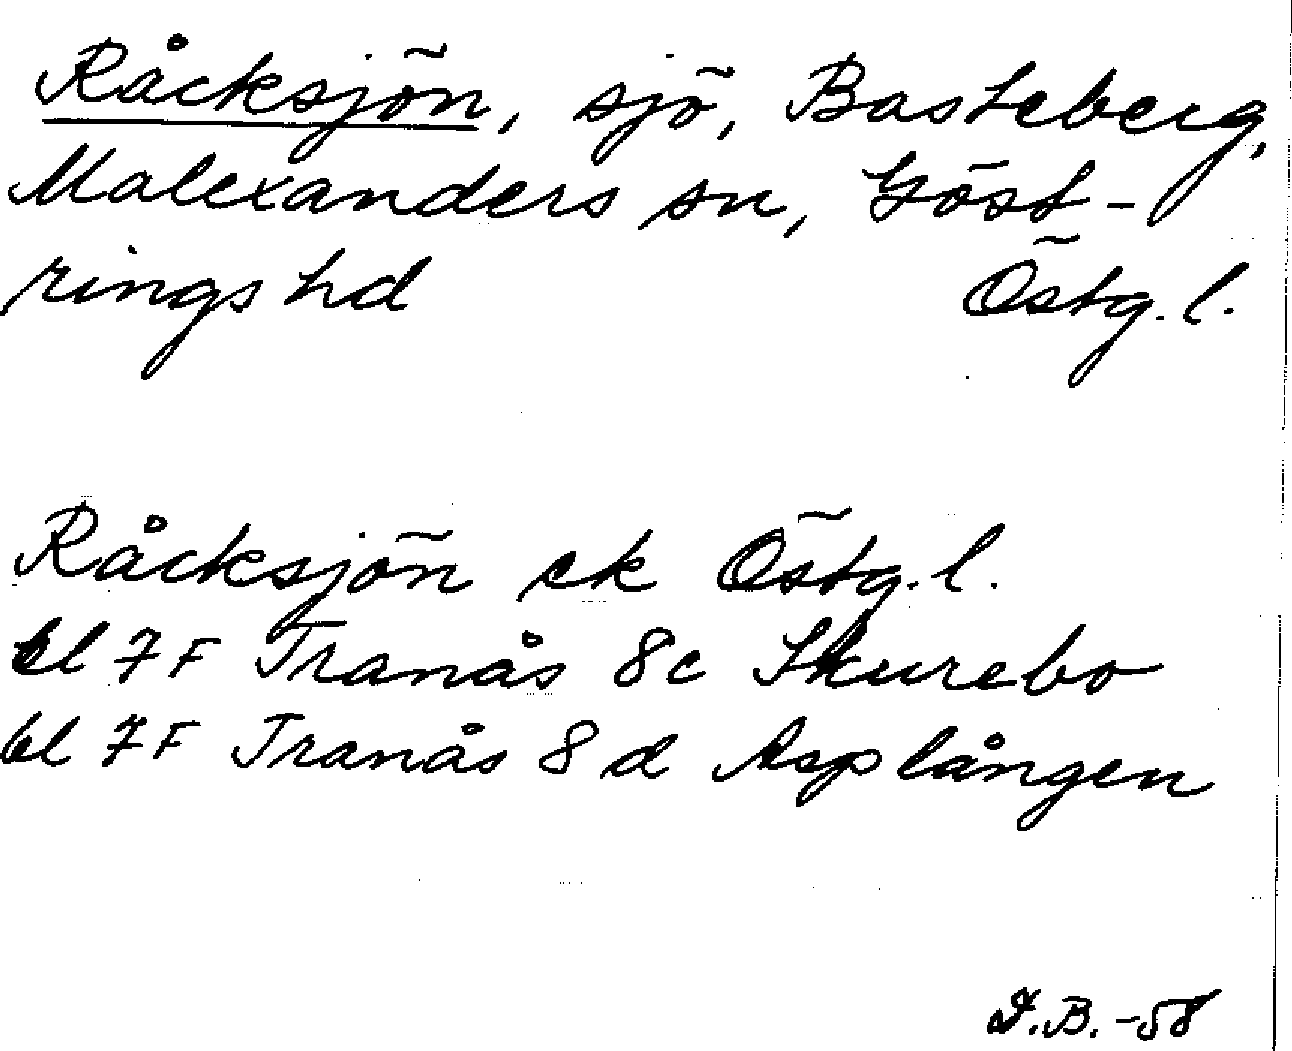 Råcksjön, sjö, Basteberg,
Malexanders sn, Göst-
rings hd Östg. l.
Råcksjön ek Östg. l.
bl 7F Tranås 8c Skurebo
bl 7F Tranås 8d Asplången
B. -58